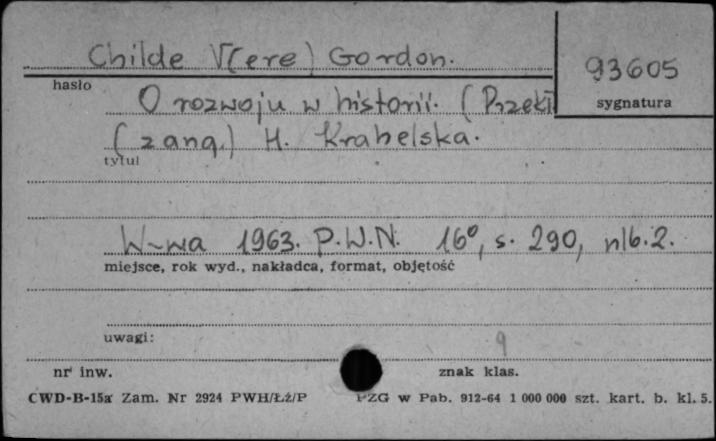 Childe V[ere] Gordon.
93605
hasło
sygnatura
O rozwoju w historii. (Przekł
(z ang.) H. Krahelska.
tytuł
W-wa 1963. P.W.N. 16°, s. 290, nlb. 2.
miejsce, rok wyd., nakładca, format, objętość
uwagi:
9
nr inw.
znak klas.
CWD-B-15a Zam. Nr 2924 PWH/Łź/P PZG w Pab. 912-64 1 000 000 szt. kart. b. kl. 5.